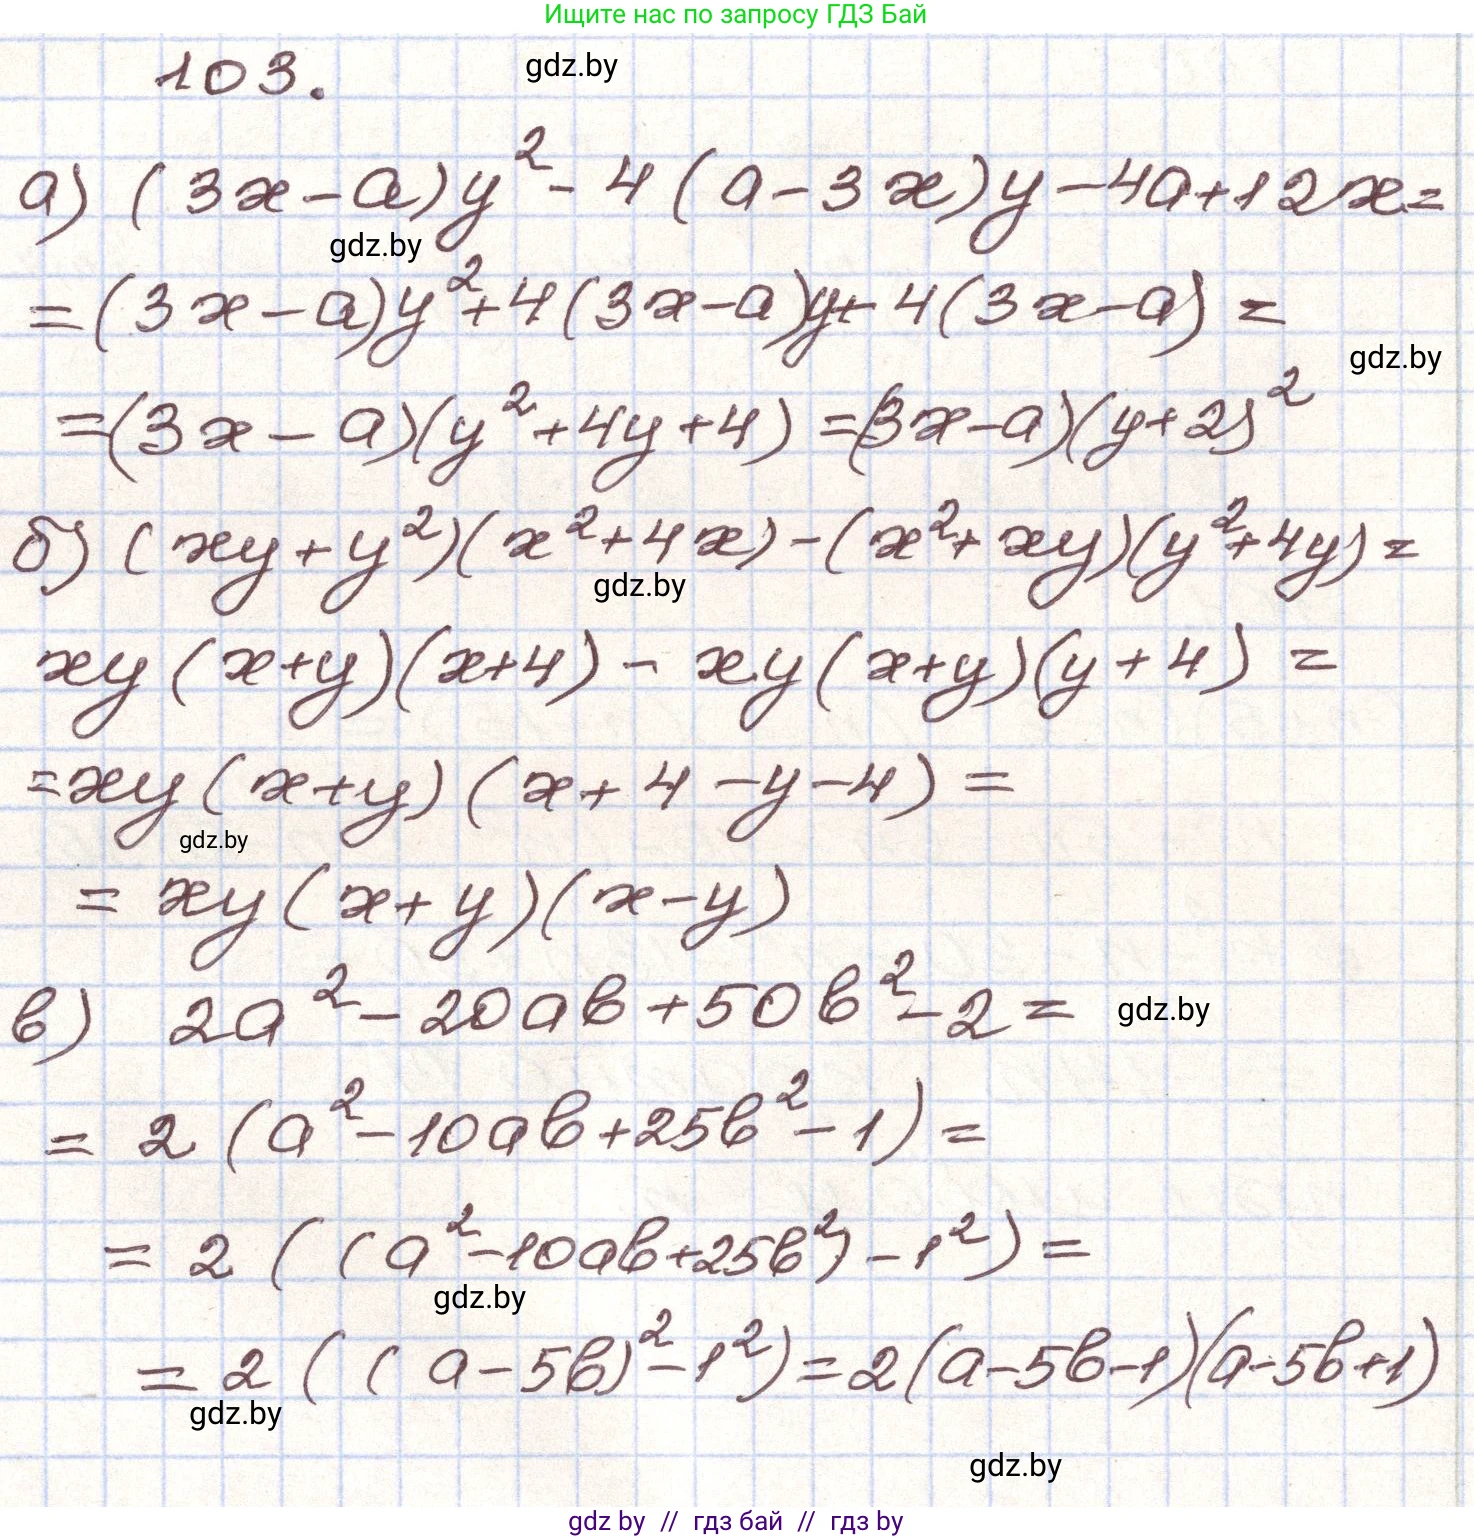 Ищите нас по запросу ГДЗ Бай
103.
gdz.by
а) (3x-a)y²-4(a-3x)y-4a+12x=
gdz.by
=(3x-a)y²+4(3x-a)y+4(3x-a)=
gdz.by
=(3x-a)(y²+4y+4)=(3x-a)(y+2)²
б) (xy+y²)(x²+4x)-(x²+xy)(y²+4y)=
gdz.by
xy(x+y)(x+4)-xy(x+y)(y+4)=
=xy(x+y)(x+4-y-4)=
gdz.by
=xy(x+y)(x-y)
в) 2a²-20ab+50b²-2=
gdz.by
=2(a²-10ab+25b²-1)=
=2((a²-10ab+25b²)-1²)=
gdz.by
=2((a-5b)²-1²)=2(a-5b-1)(a-5b+1)
gdz.by
gdz.by
gdz by // гдз бай // гдз by